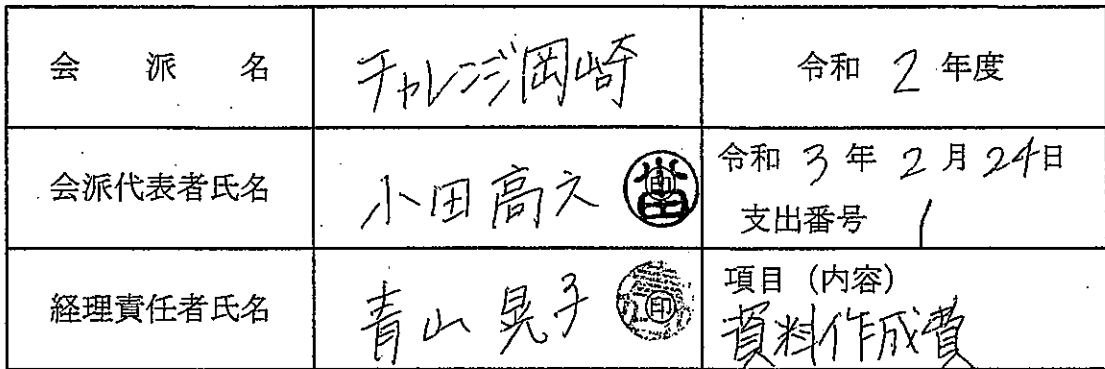 会派名 チャレンジ岡崎 令和 2 年度
会派代表者氏名 小田高之 印 令和 3 年 2 月 24日
支出番号 1
経理責任者氏名 青山晃子 印 項目（内容）
資料作成費